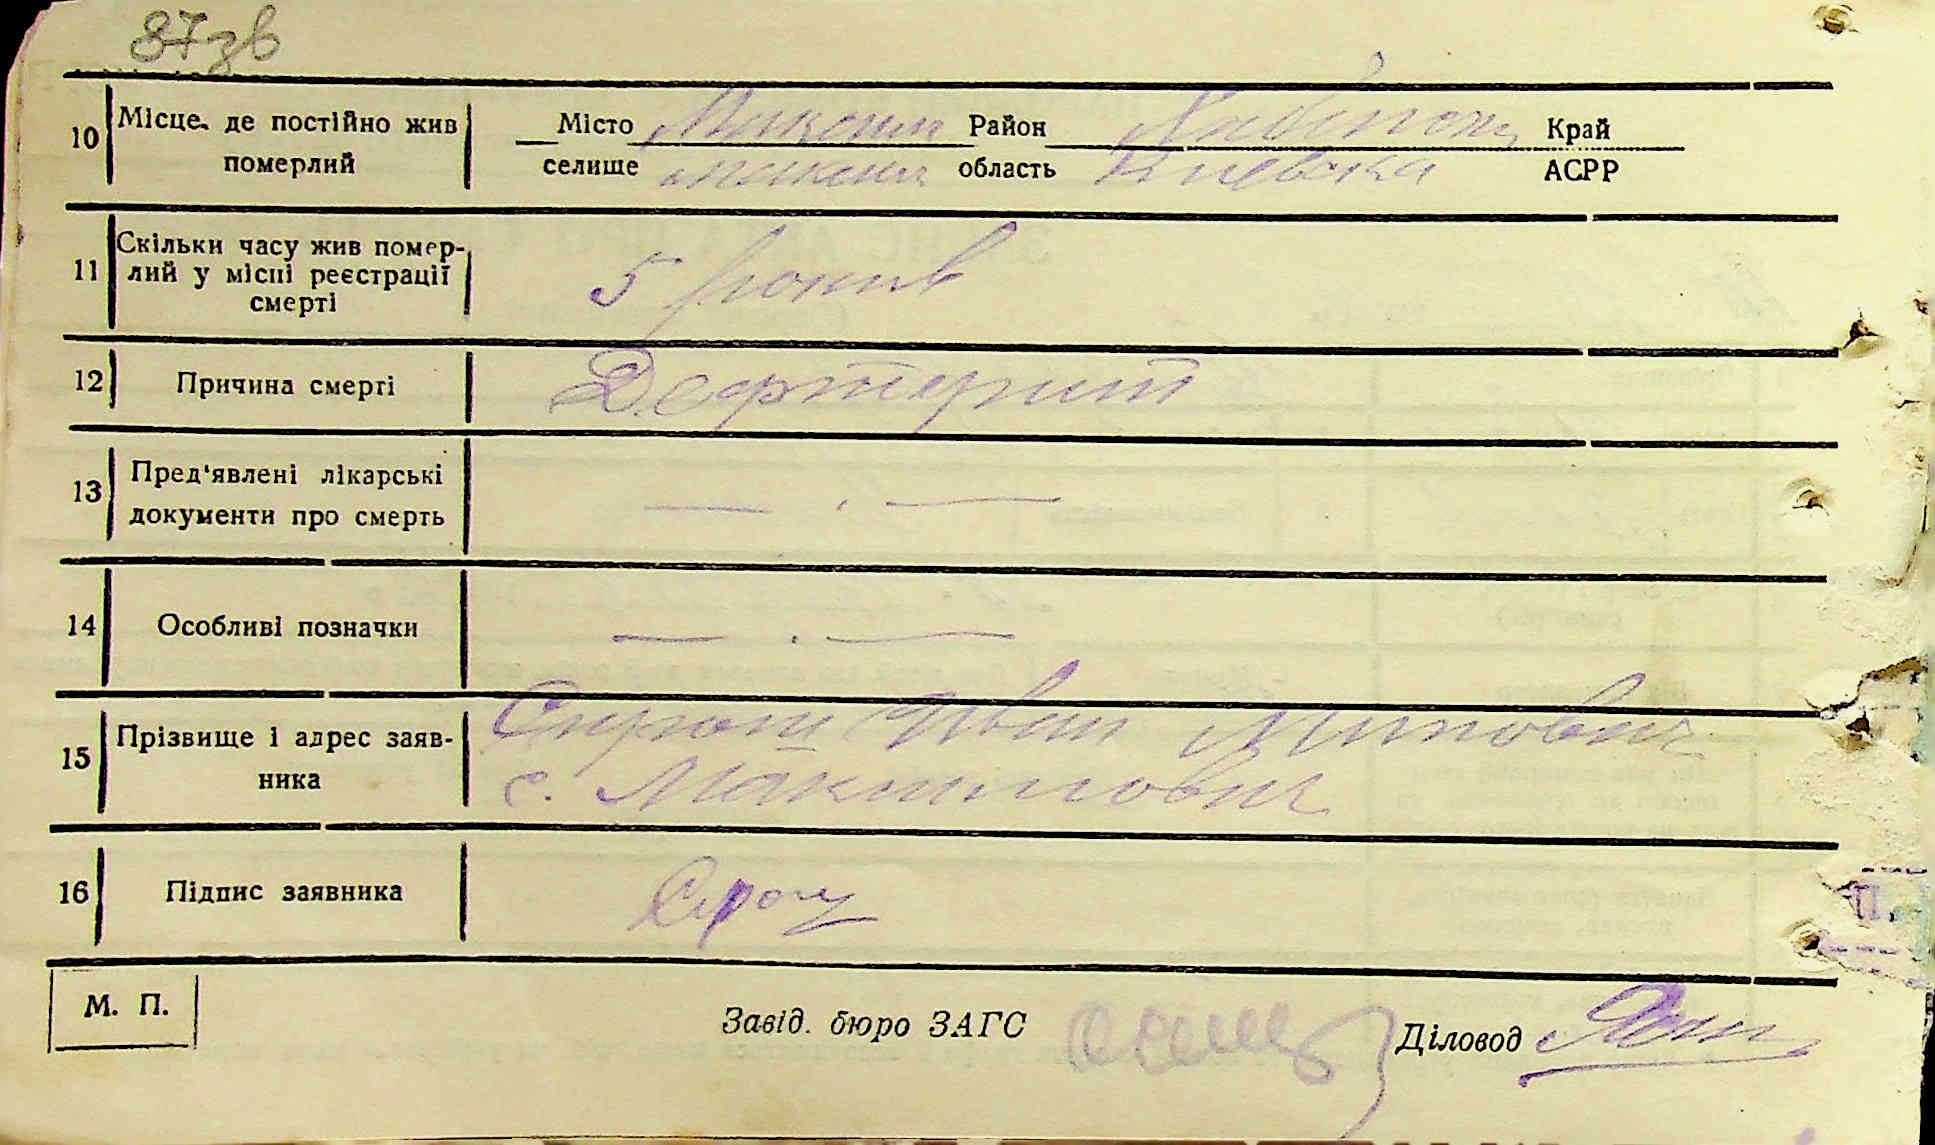 87зв
10 Місце де постійно жив померлий
Місто Район Край
селище область Киевска АСРР
11 Скільки часу жив помер-
лий у місці реєстрації
смерті
5 рокив
12 Причина смерті Дефтерит
13 Пред'явлені лікарські
документи про смерть
— . —
14 Особливі позначки — . —
15 Прізвище і адрес заяв-
ника
Иван
с. Максимович
16 Підпис заявника
М. П.
Завід. бюро ЗАГС Діловод